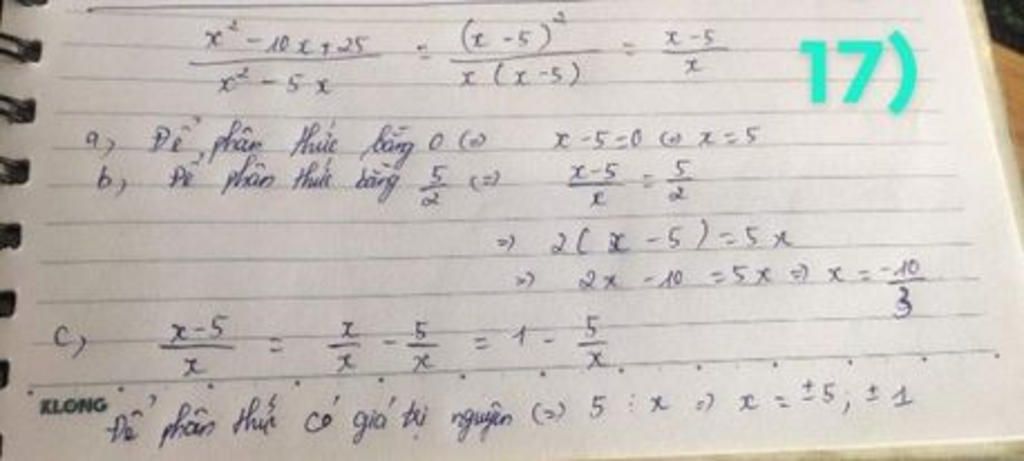 x² - 10x + 25 / x² - 5x = (x - 5)² / x(x - 5) = x - 5 / x
17)
a, Để phân thức bằng 0 (=) x - 5 = 0 (=) x = 5
b, Để phân thức bằng 5/2 (=) x - 5 / x = 5/2
=) 2(x - 5) = 5x
=) 2x - 10 = 5x =) x = -10/3
c, x - 5 / x = x/x - 5/x = 1 - 5/x
KLONG
Để phân thức có giá trị nguyên (=) 5 ⋮ x =) x = ±5; ±1